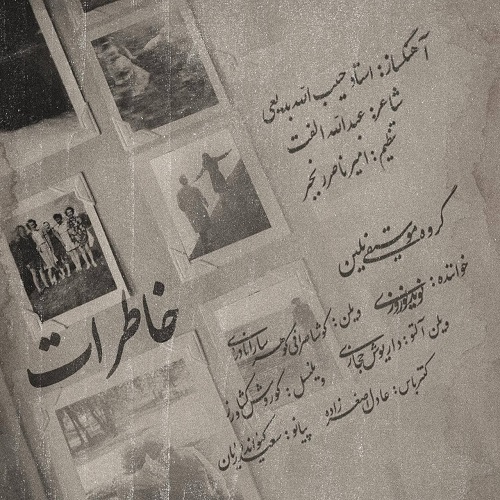 آهنگساز: استاد حبیب الله بدیعی
شاعر: عبدالله الفت
تنظیم: امیرناصر رنجبر
گروه موسیقی فیلین
خواننده: نوید نوروزی
ویلن: کوشا صرافی گوهر سارا نادری
ویلن آلتو: داریوش حجازی
ویلنسل: کوروش کشاورز
کنترباس: عادل اصغرزاده
پیانو: سعید
خاطرات